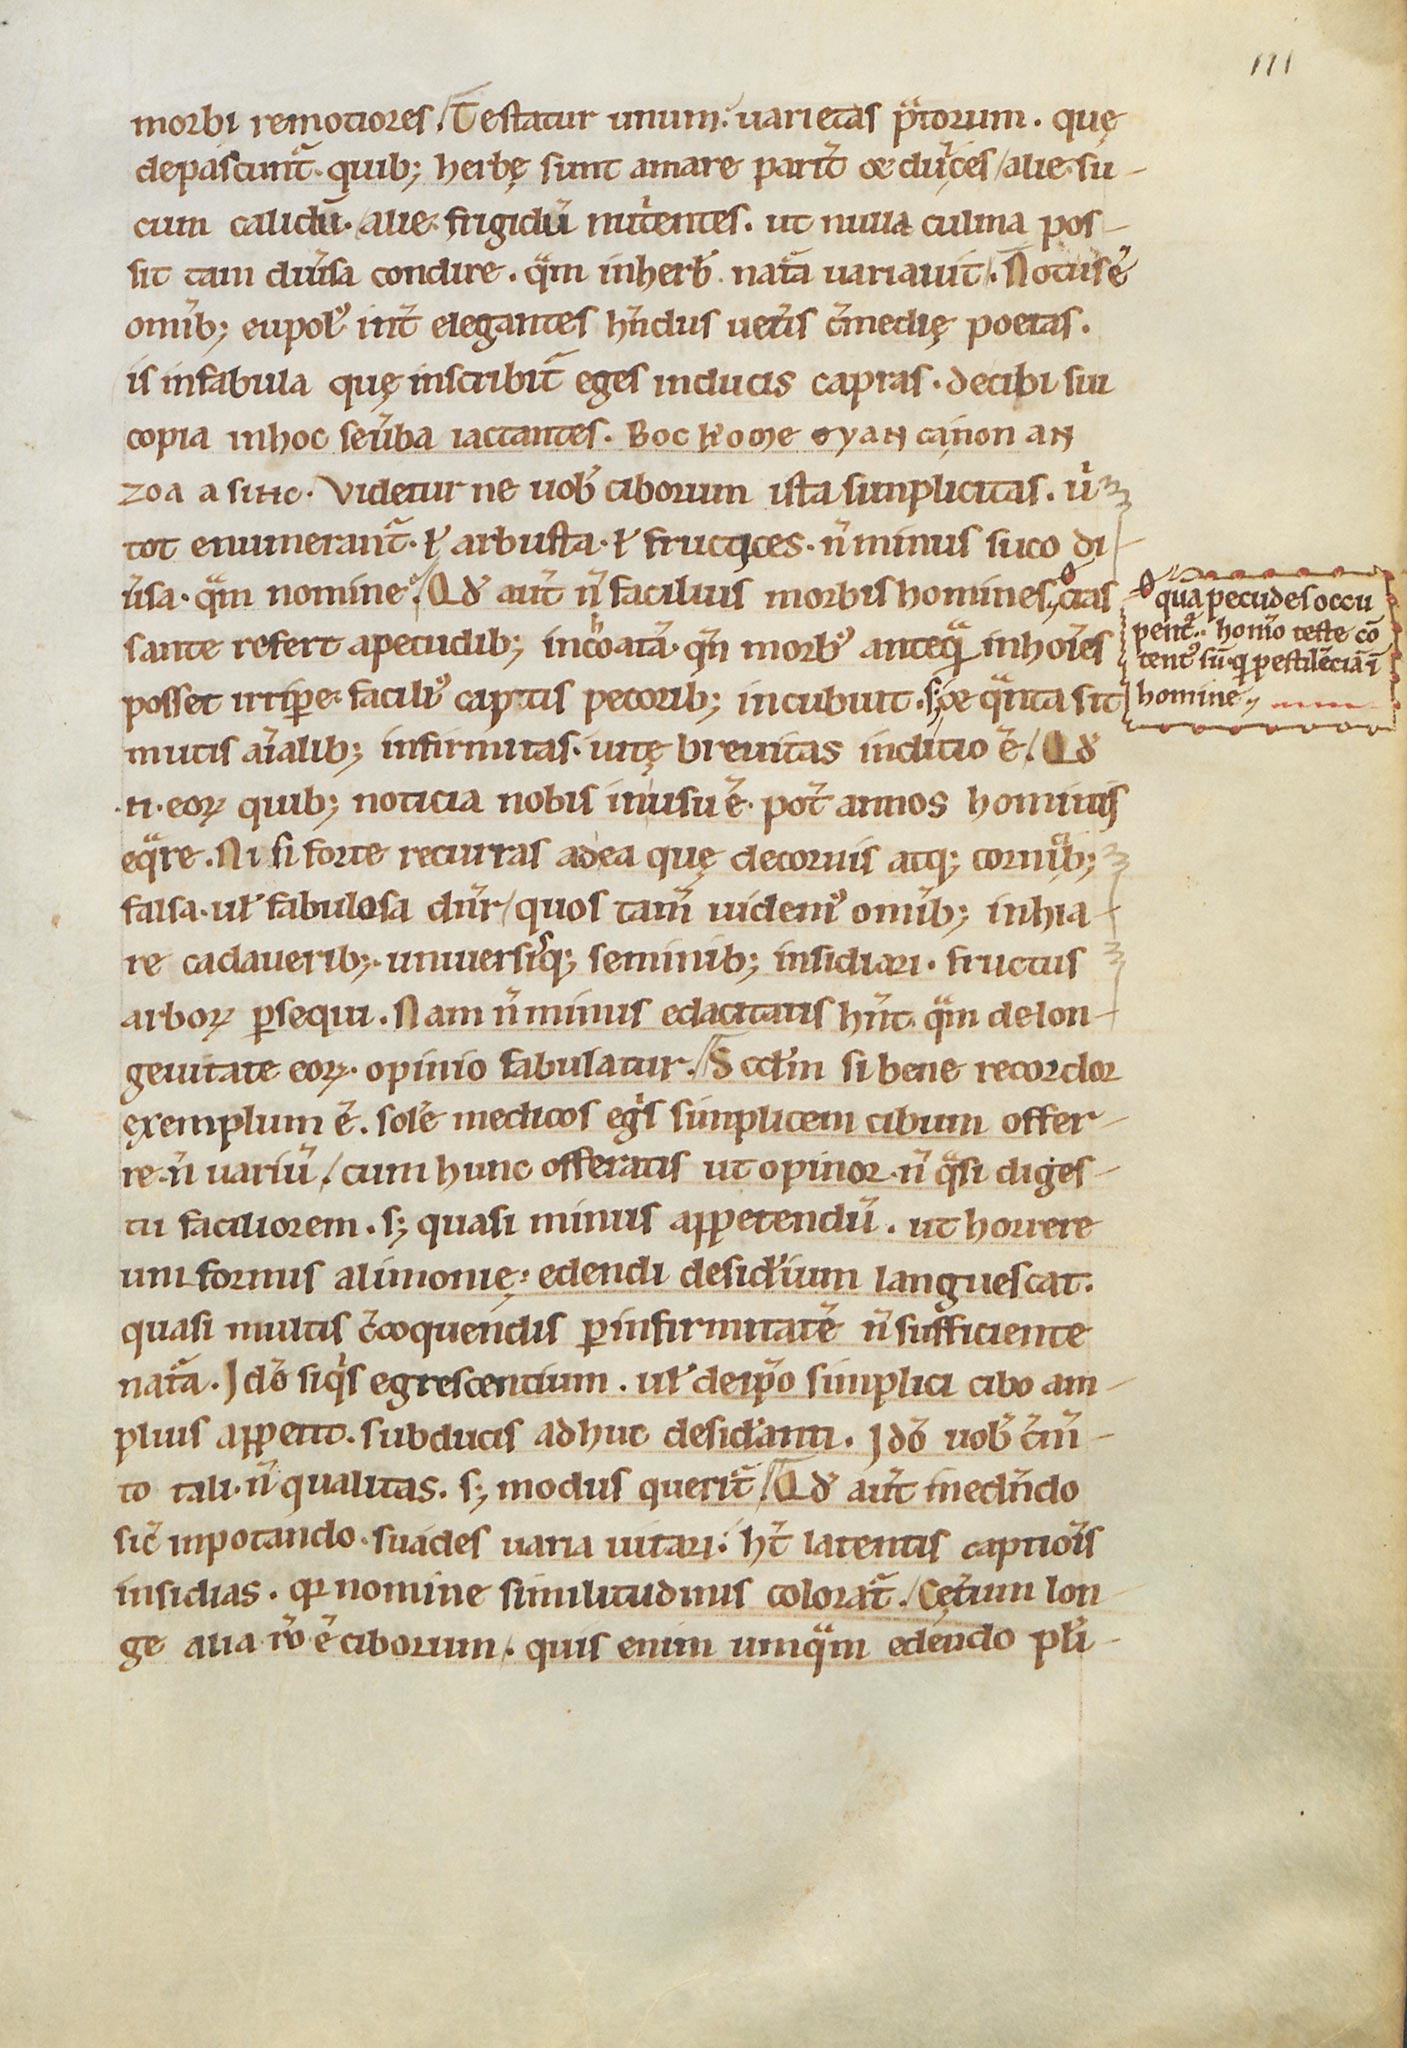 111
morbi remotiores. Testatur unum. uarietas p̄torum. quę
depascunt̄. quib; herbę sunt amare parit̄ & dulces / alie su-
cum calidū. alie. frigidū nut̄entes. ut nulla culina pos-
sit tam diu̅sa condire. q̄m inherb' nat̄a uariauit. Notus ē
om̄ib; eupol' int̄ elegantes hn̄dus uet̄is c̄medię poetas.
is infabula quę inscribit̄ eges inducis capras. decibi sui
copia inhoc seu̅ba iactantes. Boc kome
zoa a Videtur ne uob' ciborum ista simplicitas. u̅
tot enumerant̄. ł arbusta. ł fructices. n̄ minus suco di-
u̅sa. q̄m nomine. Qd' aut̄ n̄ facilius morbis homines,
sante refert apecudib; inchoata. q̄n morb' anteq̄ inho̅es
posset irrip̱e. facili' captis pecorib; incubuit. s; & q̄nta sit
mutis ai̅alib; infirmitas. uitę breuitas inditio ē. Qd'
.n. eoꝝ quib; noticia nobis inusu ē. pot̄ annos hominis
eq̄re. Ni si forte recurras adea quę decoruis atq; cornic̄ib;
falsa. uł fabulosa du̅r / quos tam̄ uidem' om̄ib; inhia-
re cadauerib;. uniuersisq; seminib; insidiari. fructus
arboꝝ p̱sequi. Nam n̄ minus edacitatis hn̄t. q̄m delon-
geuitate eoꝝ. opinio fabulatur. Scd'm si bene recordor
exemplum ē. sol'e medicos egr̄is simplicem cibum offer-
re. n̄ uariū / cum hunc offeratis ut opinor. n̄ q̄si diges-
tu faciliorem. s; quasi minus appetendū. ut horrere
uniformis alimonię. edendi desid'ium languescat.
quasi multis c̄coquendis p̱infirmitatē n̄ sufficiente
nat̄a. Jdō siq̄s egrescentium. uł deip̄o simplici cibo am-
plius appetit. subducis adhuc desid'anti. Jdō uob' c̄m̄-
to tali. n̄ qualitas. s; modus querit̄. Qd' aut̄ inedn̄do
sic̄ inpotando. suades uaria uitari. ht̄ latentis captio̅is
insidias. qr nomine similitudinis colorat̄. Cęt̄um lon
ge alia r̄o ē ciborum. quis enim umq̄m edendo pl'i-
quā pecudes occu
pent̄. hom̄o teste cō
tent' sū. q̱ pestilēciā i
homine.